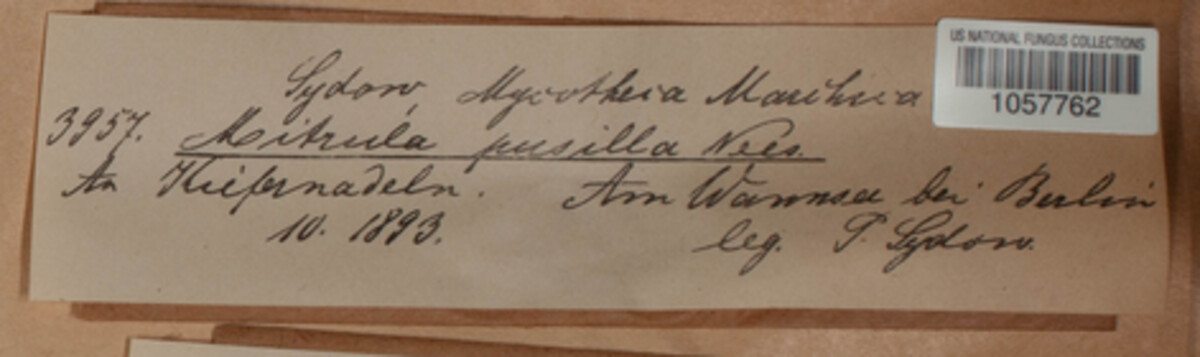 US NATIONAL FUNGUS COLLECTIONS
1057762
Sydow, Mycotheca Marchica
3957. Mitrula pusilla Nees.
An Kiefernadeln. Am Wannsee bei Berlin
10. 1893. leg. P. Sydow.